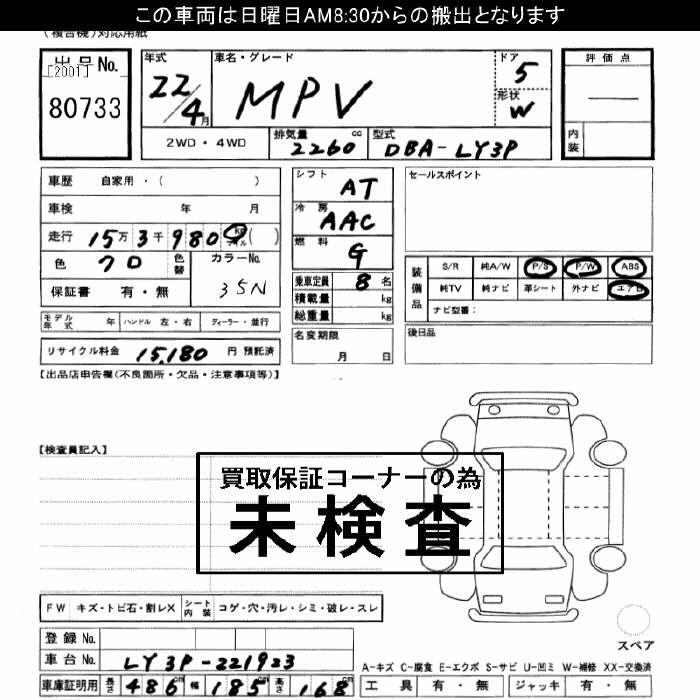 この車両は日曜日AM8:30からの搬出となります
(複合機)対応用紙
出品No.
[2001]
80733
年式
22/4月
車名・グレード
MPV
ドア
5
形状
W
2WD・4WD
排気量
2260
cc
型式
DBA-LY3P
評価点
—
内装
車歴 自家用・( )
車検 年 月
走行 15万3千980 km マイル ( )
色 クロ
色替
カラーNo.
35N
保証書 有・無
モデル年式 年 ハンドル 左・右 ディーラー・並行
リサイクル料金 15,180 円 預託済
シフト
AT
冷房
AAC
燃料
G
乗車定員 8名
積載量 kg
総重量 kg
名変期限
月 日
セールスポイント
装備品
S/R 純A/W P/S P/W ABS
純TV 純ナビ 革シート 外ナビ エアB
ナビ型番:
後日品
【出品店申告欄(不良箇所・欠品・注意事項等)】
【検査員記入】
買取保証コーナーの為
未検査
FW キズ・トビ石・割レX シート内装 コゲ・穴・汚レ・シミ・破レ・スレ
登録No.
車台No. LY3P-221923
車庫証明用 長さ 486cm 幅 185cm 高さ 168cm
スペア
A-キズ C-腐食 E-エクボ S-サビ U-凹ミ W-補修 XX-交換済
工具 有・無 ジャッキ 有・無